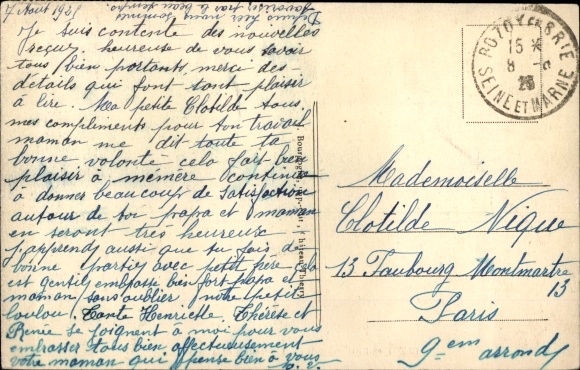 7 Aout 1928
Je suis contente des nouvelles
reçues. heureuse de vous savoir
tous bien portants, merci des
détails qui font tant plaisir
à lire. Ma petite Clotilde tous
mes compliments pour ton travail
maman me dit toute ta
bonne volonté cela fait bien
plaisir à mémère continue
à donner beaucoup de satisfaction
autour de toi papa et maman
en seront très heureuse
j'apprends aussi que tu fais de
bonne parties avec petit père cela
est gentil embrasse bien fort papa et
maman sans oublier notre petit
loulou. Tante Henriette Thérèse et
Renée se joignent à moi pour vous
embrasser tous bien affectueusement
votre maman qui pense bien à vous
Depuis hier nous sommes
favorisés par le beau temps
ROZOY EN BRIE
15 *
8 - 8
28
SEINE ET MARNE
Mademoiselle
Clotilde Nique
13 Faubourg Montmartre
13
Paris
9em arrond